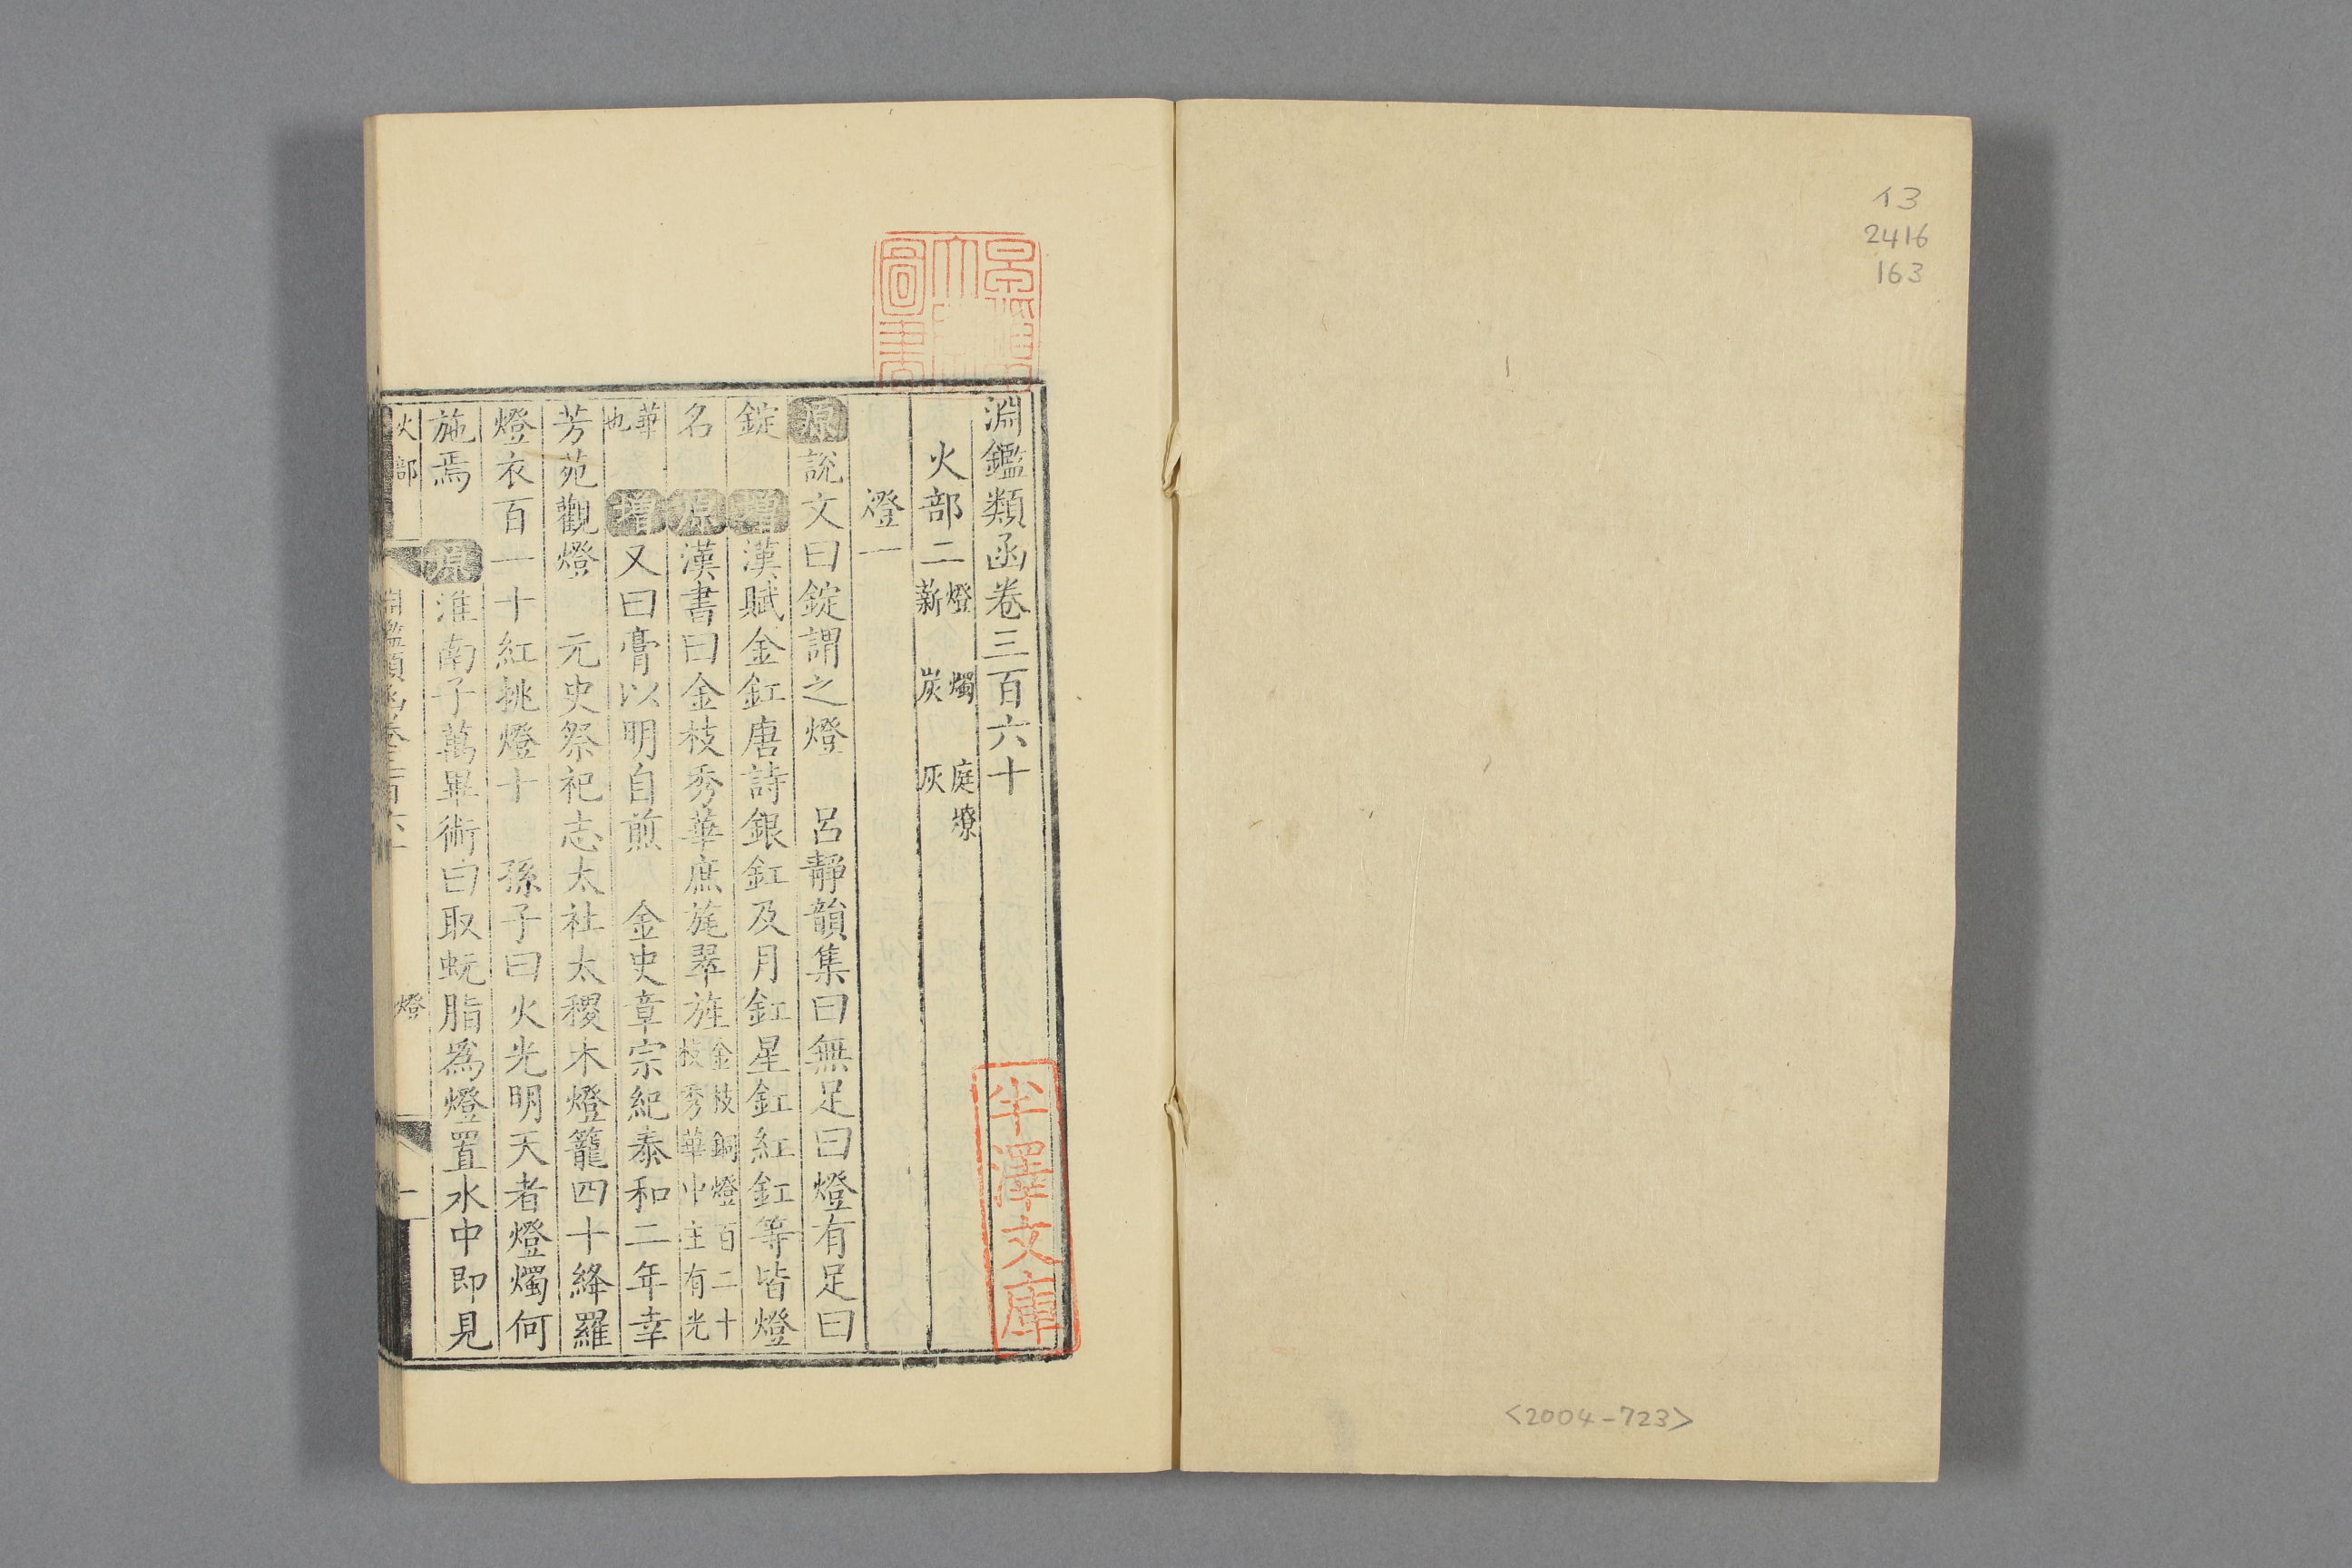 13
2416
163
<2004-723>
淵鑑類函卷三百六十
火部二 燈 燭 庭燎
薪 炭 灰
燈一
原說文曰錠謂之燈 呂靜韻集曰無足曰燈有足曰
錠 增漢賦金釭唐詩銀釭及月釭星釭紅釭等皆燈
名 原漢書曰金枝秀華庶旄翠旌 金枝銅燈百二十
枝秀華中主有光
華
也 增又曰膏以明自煎 金史章宗紀泰和二年幸
芳苑觀燈 元史祭祀志太社太稷木燈籠四十絳羅
燈衣百一十紅挑燈十 孫子曰火光明天者燈燭何
施焉 原淮南子萬畢術曰取蚖脂為燈置水中即見
火部 淵鑑類函卷三百六十 燈 一
圖書
半澤文庫